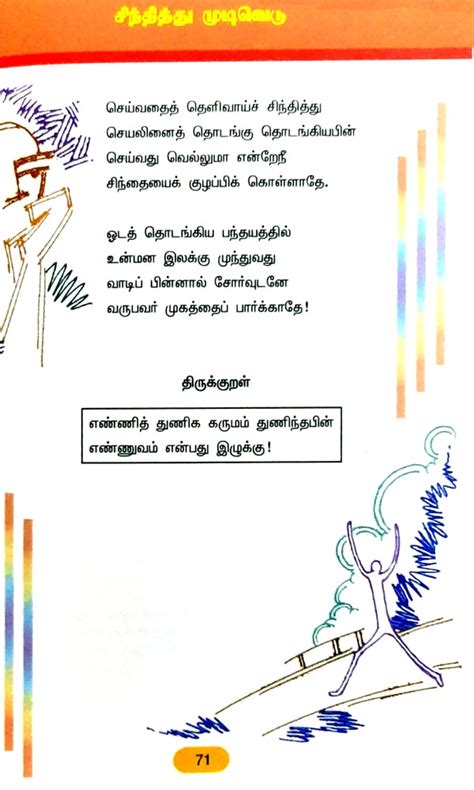 சிந்தித்து முடிவெடு
செய்வதைத் தெளிவாய்ச் சிந்தித்து
செயலினைத் தொடங்கு தொடங்கியபின்
செய்வது வெல்லுமா என்றேநீ
சிந்தையைக் குழப்பிக் கொள்ளாதே.
ஓடத் தொடங்கிய பந்தயத்தில்
உன்மன இலக்கு முந்துவது
வாடிப் பின்னால் சோர்வுடனே
வருபவர் முகத்தைப் பார்க்காதே!
திருக்குறள்
எண்ணித் துணிக கருமம் துணிந்தபின்
எண்ணுவம் என்பது இழுக்கு!
71